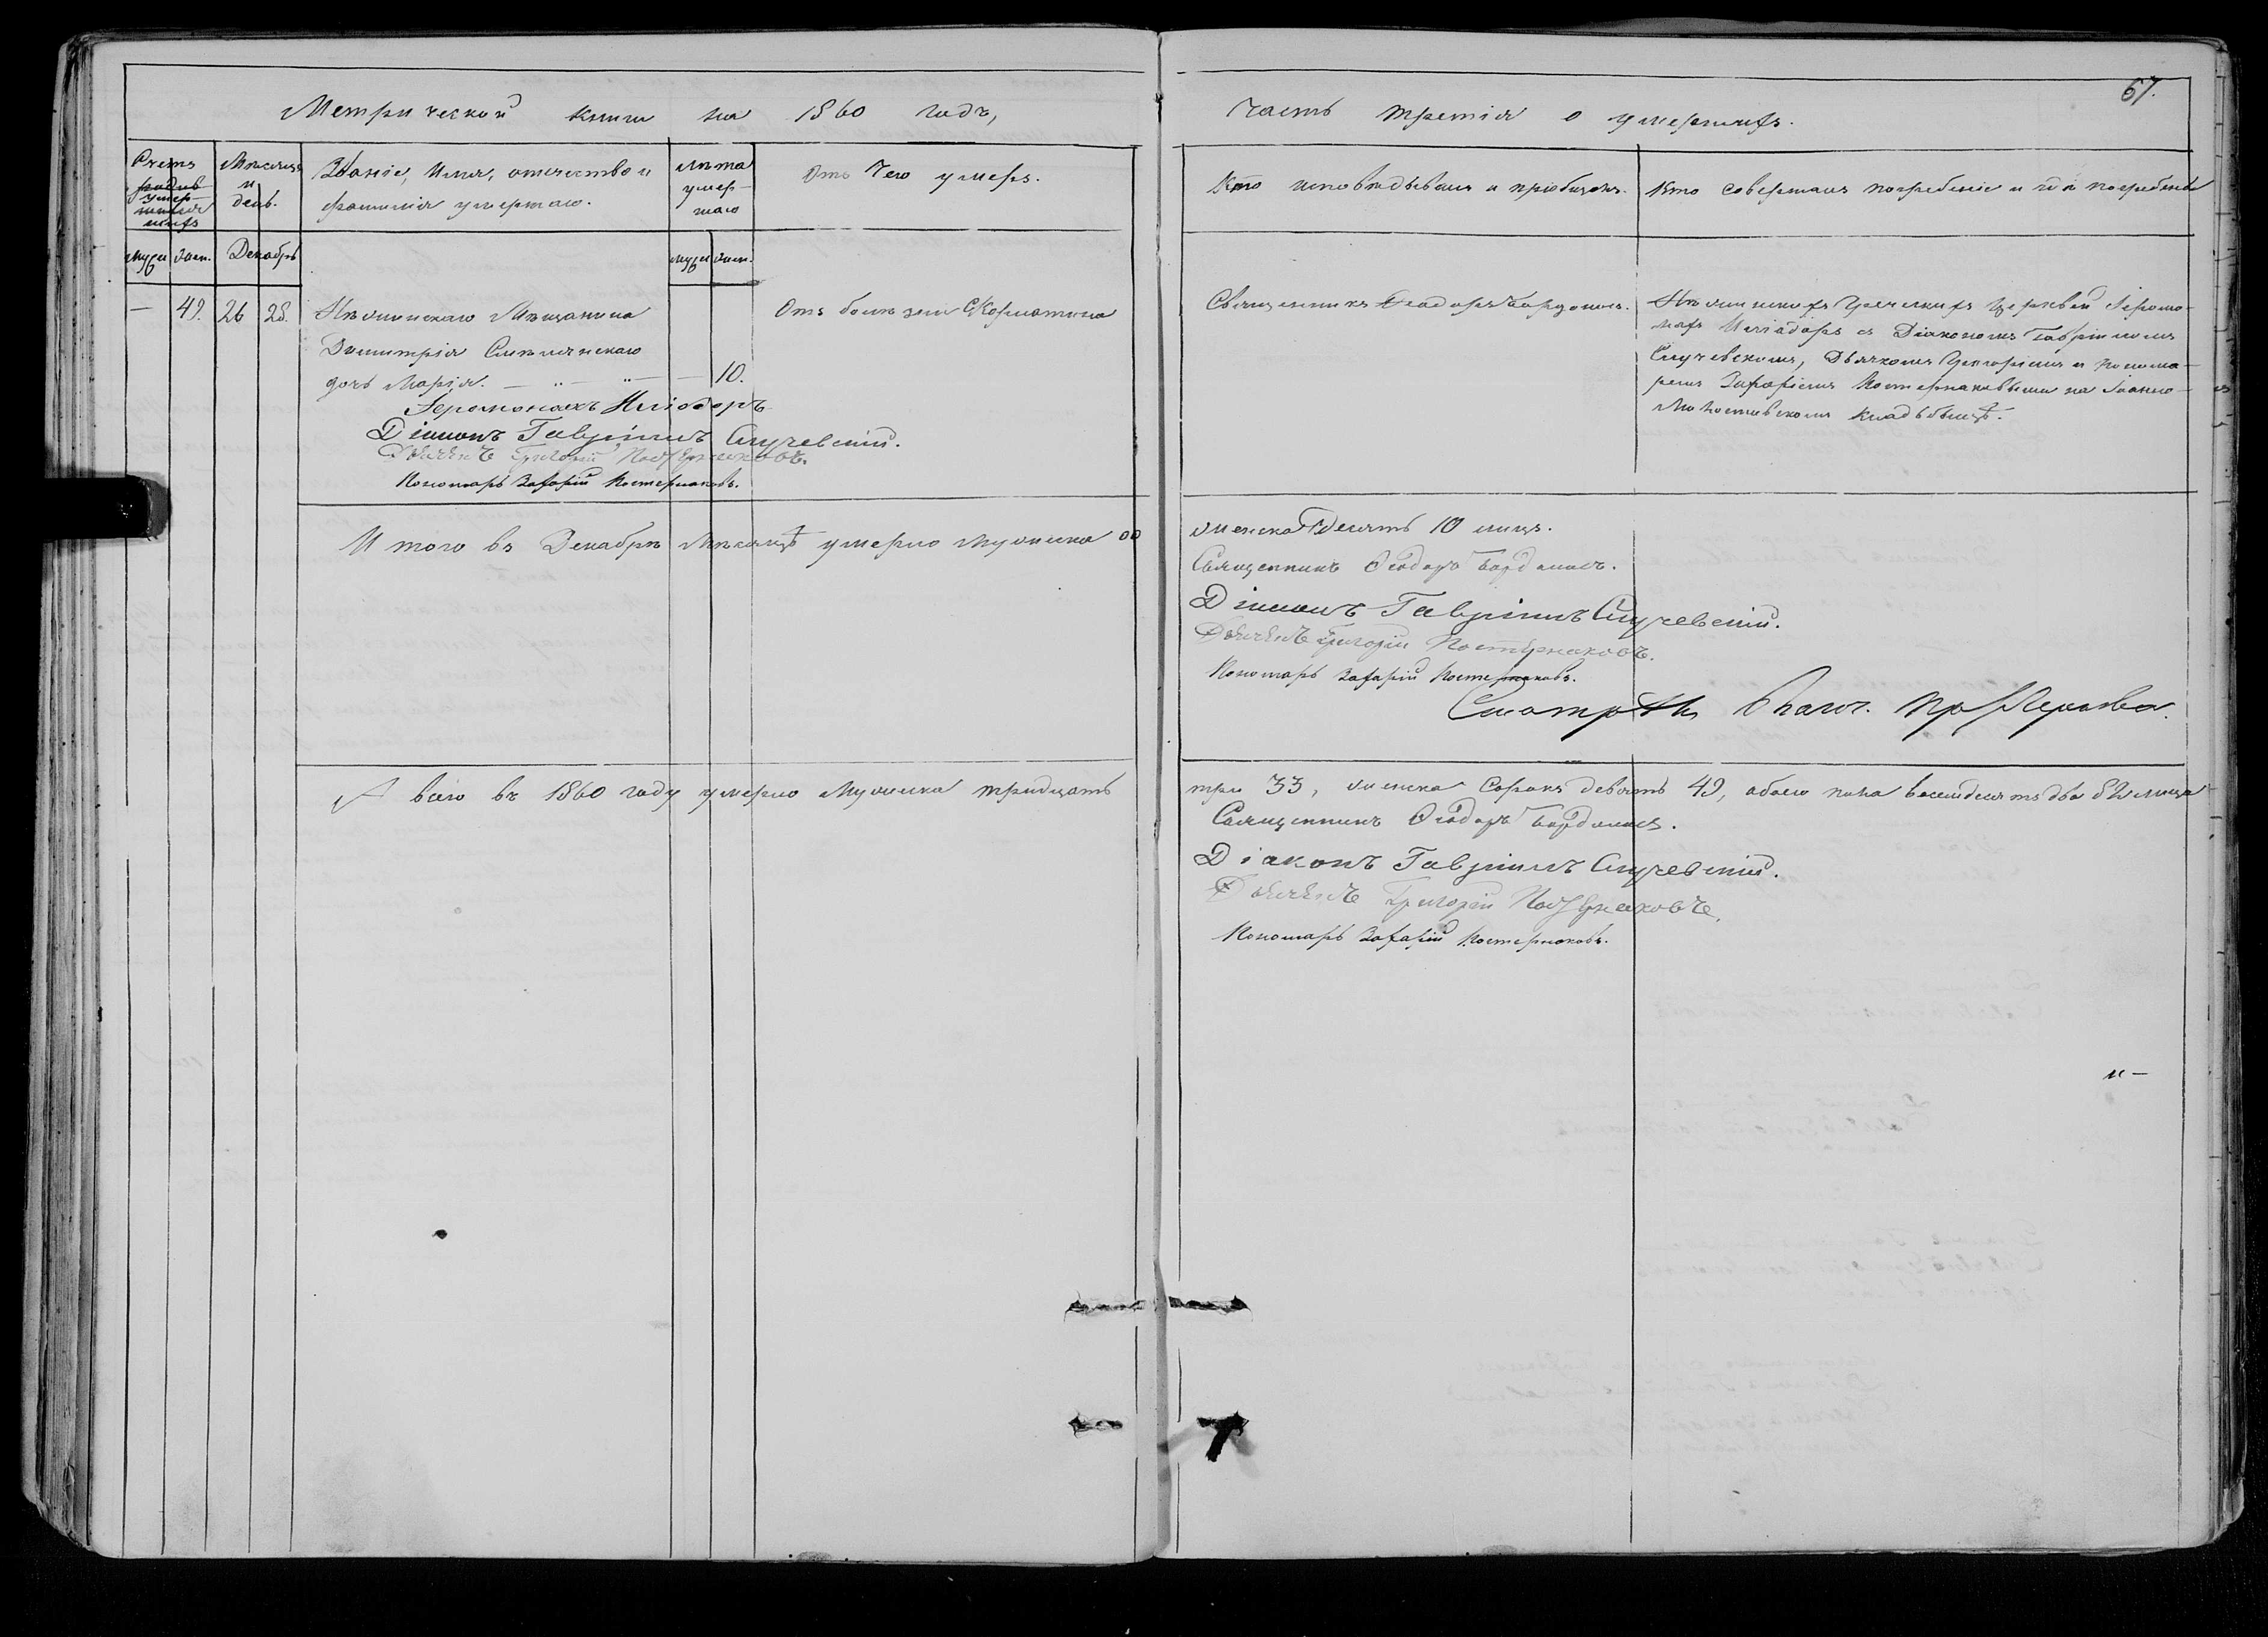 Метрической книги на 1860 годъ,
Счетъ умершихъ
Мѣсяцъ и день.
Званіе, имя, отечество и фамилія умершаго.
Лѣта умершаго
Отъ чего умеръ.
муж. жен.
Декабрь
муж. жен.
— 49. 26 28.
Нѣжинскаго Мѣщанина
Димитрія
дочь Марія. — „ — „ — — 10.
Отъ болѣзни
Іеромонахъ Иліодоръ
Діаконъ Гавріилъ Случевскій.
Дьячекъ Григорій Постернаковъ.
Пономарь Захарій Постернаковъ.
И того въ Декабрѣ Мѣсяцѣ умерло мужеска 00
А всего въ 1860 году умерло мужеска тридцать
67.
Часть третія о умершихъ.
Кто исповѣдывалъ и пріобщалъ.
Кто совершалъ погребеніе и гдѣ погребены
Священникъ Ѳеодоръ Бордоносъ.
Нѣжинскихъ Греческихъ церквей Іеромо-
нахъ Иліодоръ съ Діакономъ Гавріиломъ
Случевскимъ, Дьячкомъ Григоріемъ и понома-
ремъ Захаріемъ Постернаковыми на
кладбищѣ.
женска десять 10 лицъ.
Священникъ Ѳеодоръ Бордоносъ.
Діаконъ Гавріилъ Случевскій.
Дьячекъ Григорій Постернаковъ.
Пономарь Захарій Постернаковъ.
Смотрѣлъ Благоч.
три 33, женска сорокъ девять 49, обоего пола восемдесятъ два 82 лица
Священникъ Ѳеодоръ Бордоносъ.
Діаконъ Гавріилъ Случевскій.
Дьячекъ Григорій Постернаковъ.
Пономарь Захарій Постернаковъ.